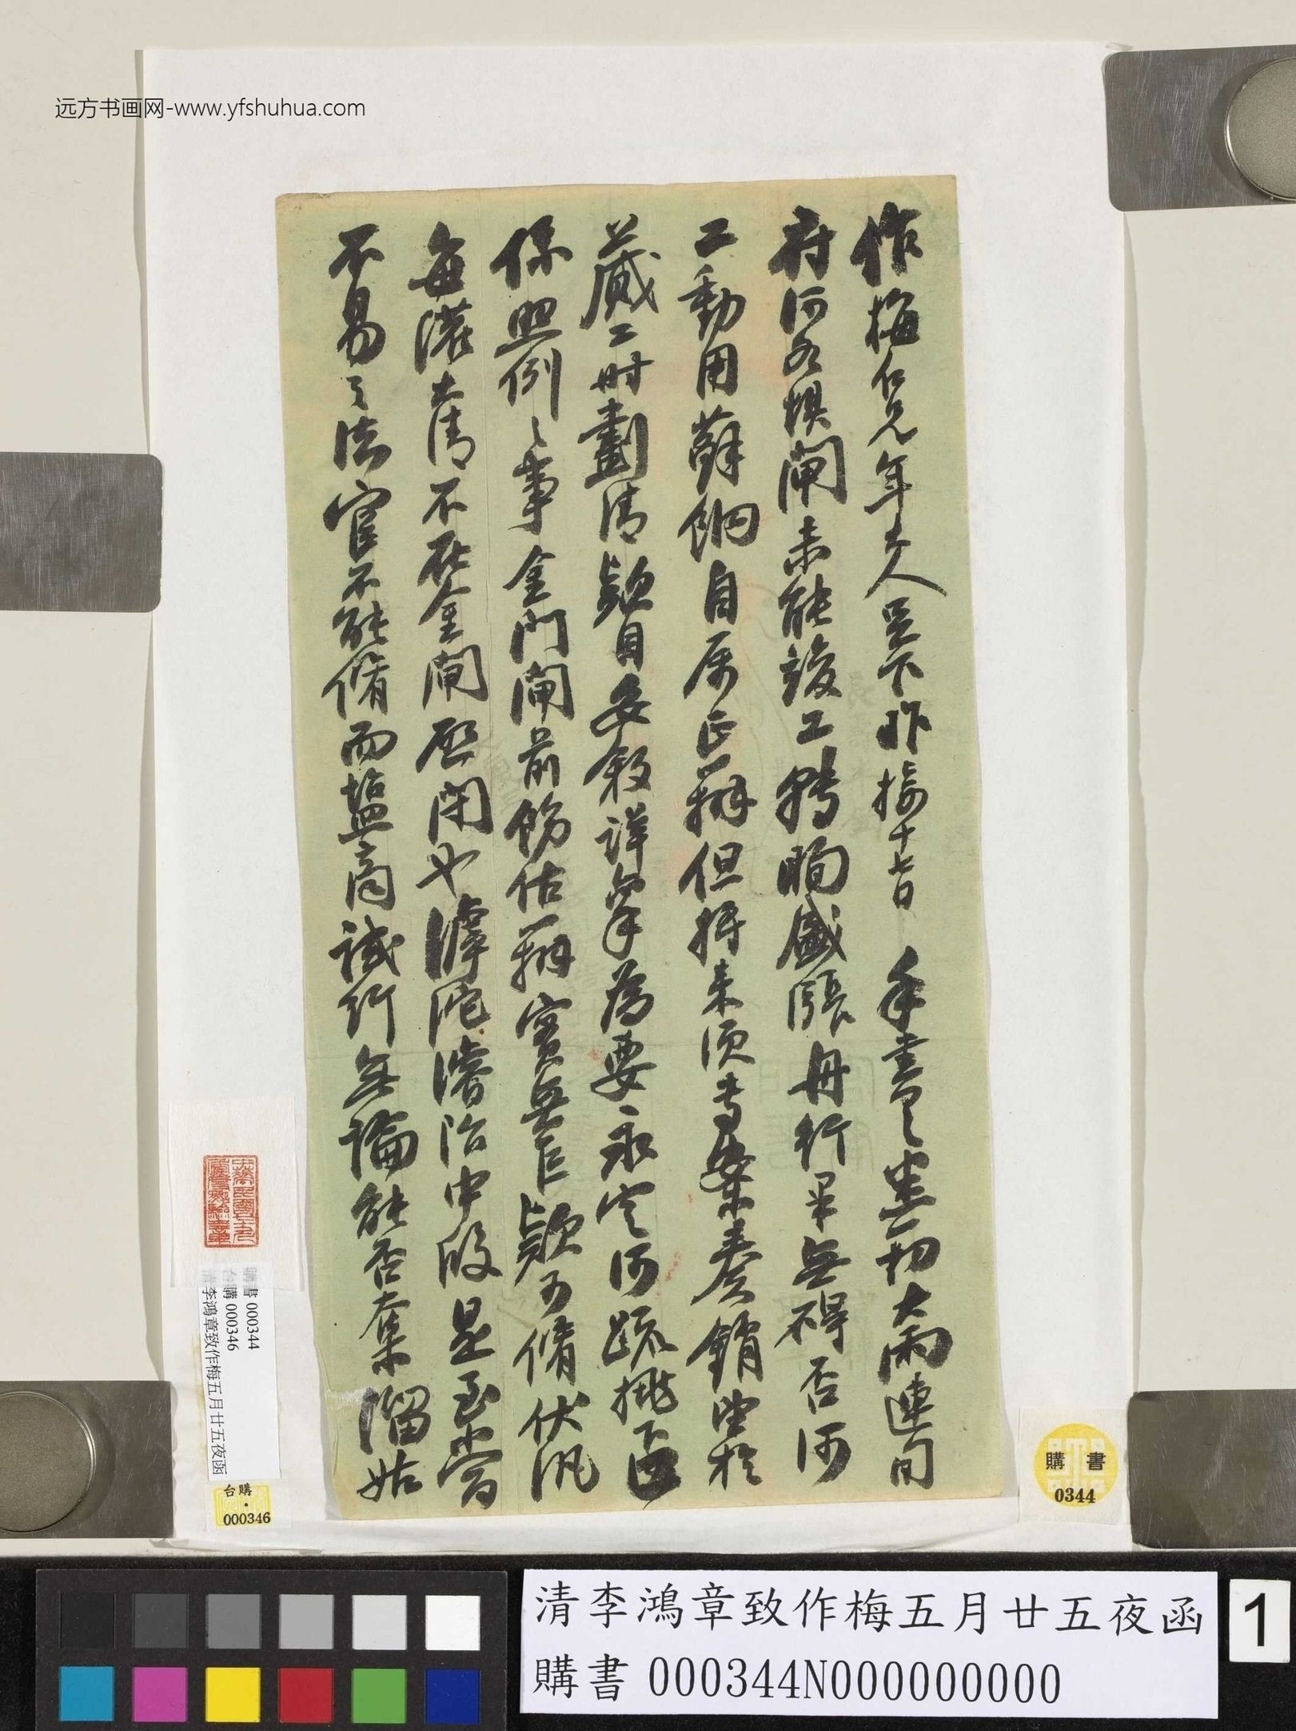 远方书画网-www.yfshuhua.com
作梅仁兄年大人足下昨接十七日手書具悉一切大雨連旬
府河各壩閘未能竣工轉瞬盛漲舟行果無礙否河
工動用蘇餉自屬正辦但將來須專案奏銷望於
蕆工時劃清款目妥敘詳彙為要永定河疏挑
係照例之事金門閘前飭估辦實無巨款可備伏汛
每濃清不在金閘啟閉也滹沱濬治中段是至當
不易之法官不能備而鹽商試行無論能否奪溜姑
購書 000344
台購 000346
清李鴻章致作梅五月廿五夜函
台購
000346
購書
0344
清李鴻章致作梅五月廿五夜函
購書 000344N000000000
1